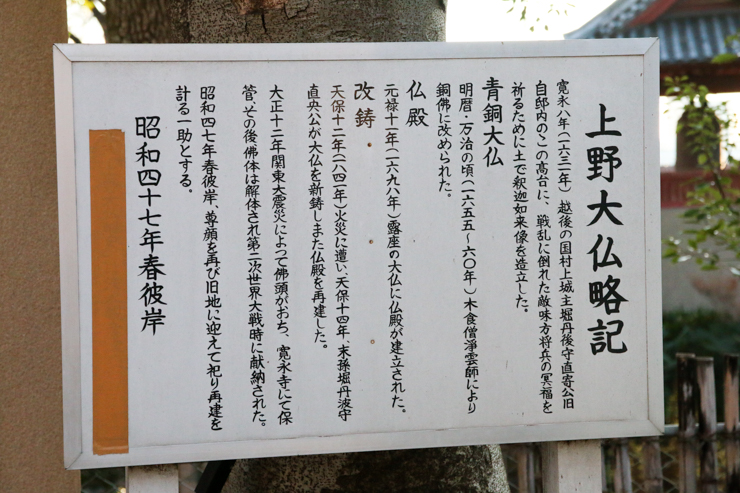 上野大仏略記
寛永八年(一六三一年)越後の国村上城主堀丹後守直寄公旧
自邸内のこの高台に、戦乱に倒れた敵味方将兵の冥福を
祈るために土で釈迦如来像を造立した。
青銅大仏
明暦・万治の頃(一六五五~六〇年)木食僧淨雲師により
銅佛に改められた。
仏殿
元禄十一年(一六九八年)露座の大仏に仏殿が建立された。
改鋳
天保十二年(一八四一年)火災に遭い、天保十四年、末孫堀丹波守
直央公が大仏を新鋳しまた仏殿を再建した。
大正十二年関東大震災によって佛頭がおち、寛永寺にて保
管、その後、佛体は解体され第二次世界大戦時に献納された。
昭和四七年春彼岸、尊顔を再び旧地に迎えて祀り再建を
計る一助とする。
昭和四十七年春彼岸